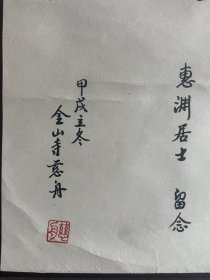 惠渊居士 留念
甲戌立冬
金山寺慈舟